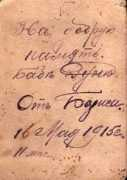 На добрую
память.
бабѣ
Отъ Бориса.
16 Мая 1915 г.